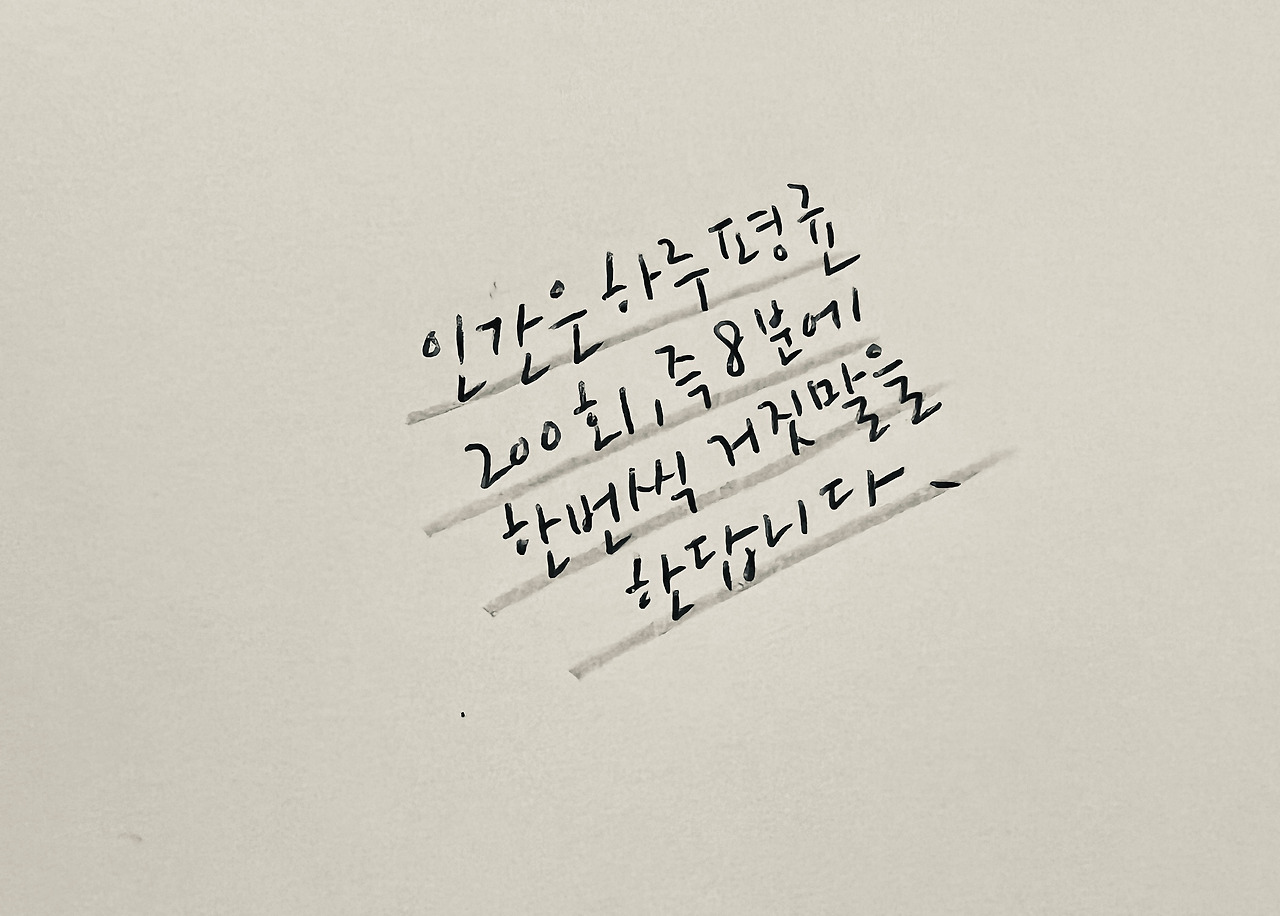 인간은 하루 평균
200회, 즉 8분에
한번씩 거짓말을
한답니다.